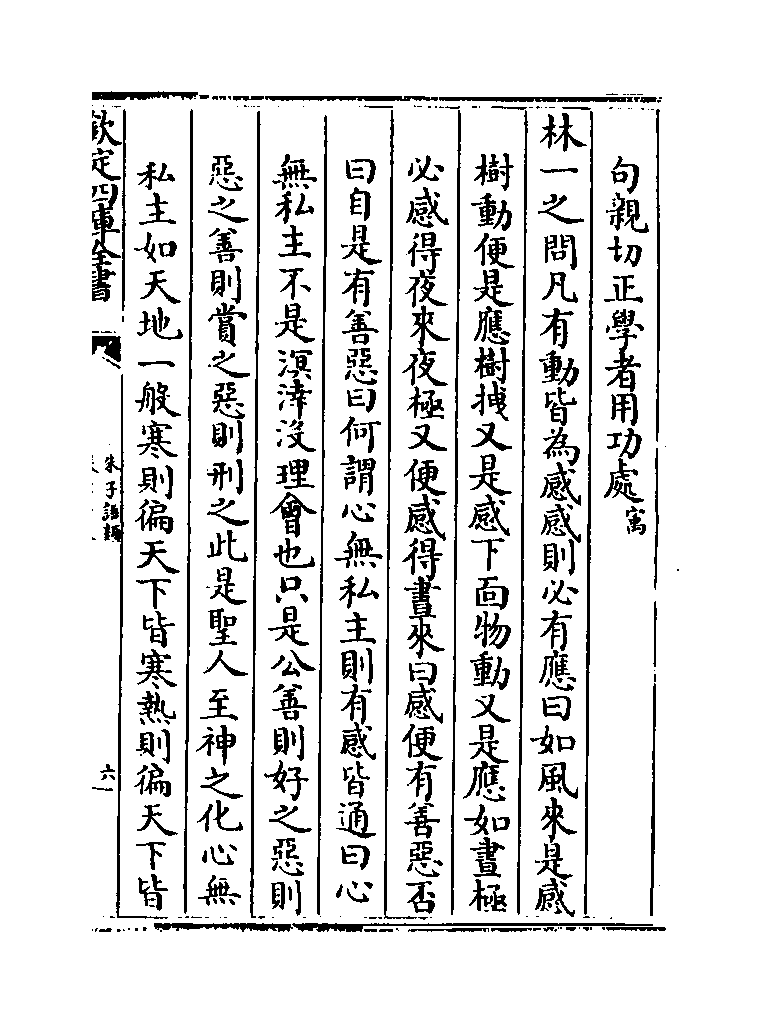 句親切正學者用功處寓
林一之問凡有動皆為感感則必有應曰如風來是感
樹動便是應樹拽又是感下面物動又是應如晝極
必感得夜來夜極又便感得晝來曰感便有善惡否
曰自是有善惡曰何謂心無私主則有感皆通曰心
無私主不是溟涬沒理會也只是公善則好之惡則
惡之善則賞之惡則刑之此是聖人至神之化心無
私主如天地一般寒則徧天下皆寒熱則徧天下皆
欽定四庫全書
朱子語類
六一